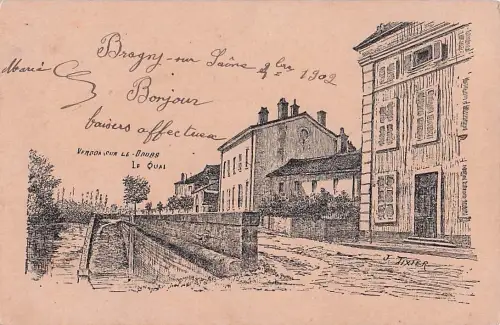 Bragny-sur Saône 9bre 1902
Marie
Bonjour
baisers affectueux
VERDUN-SUR-LE-DOUBS
LE QUAI
J. TIXIER